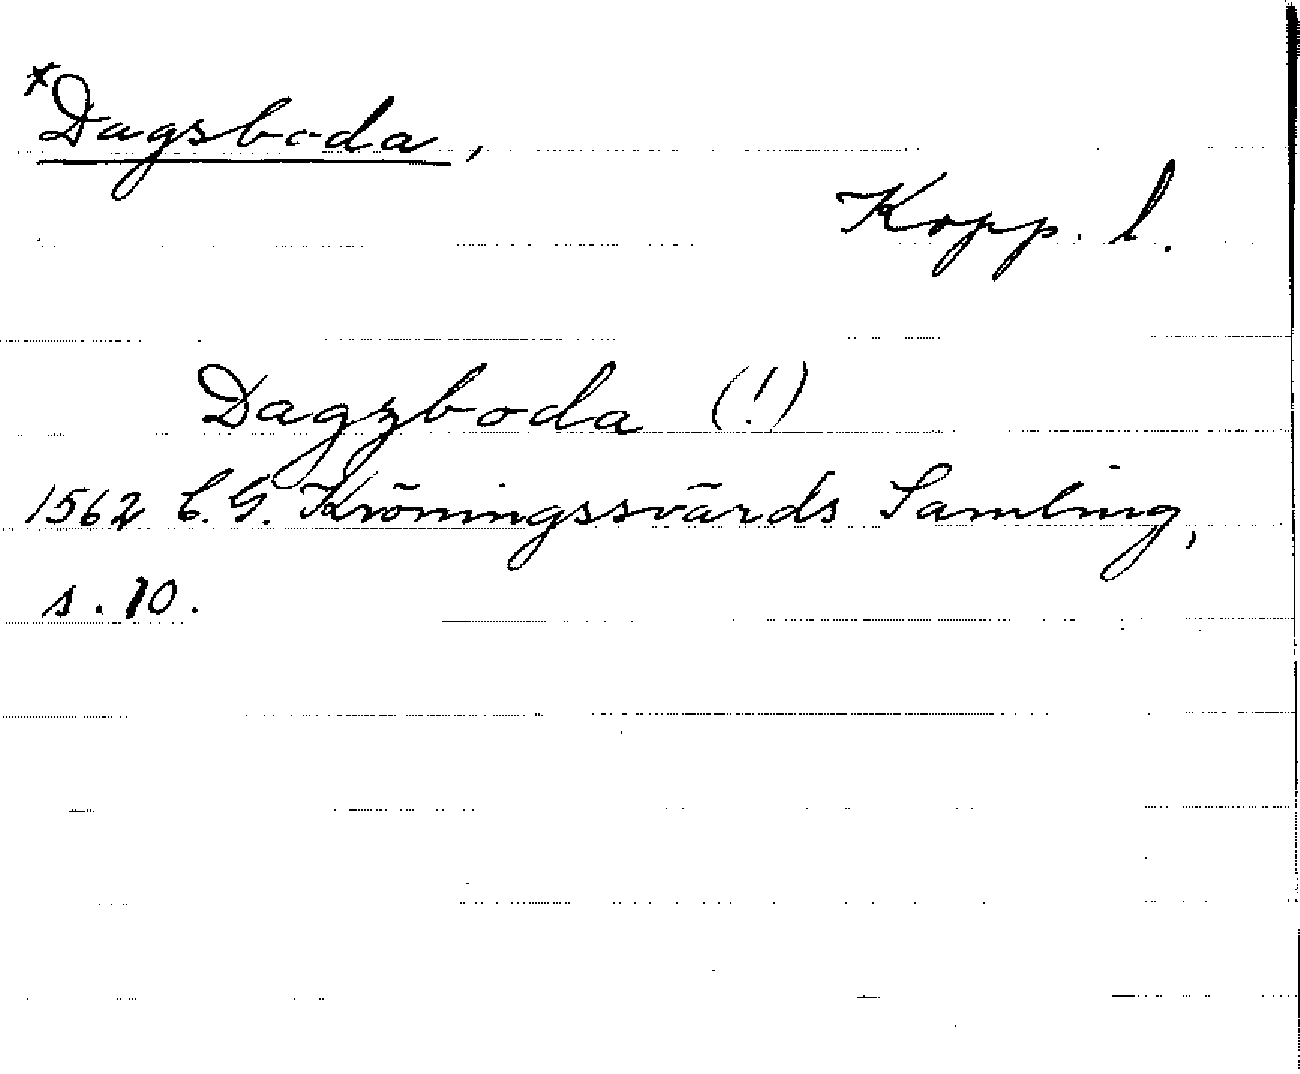 *Dagsboda,
Kopp. l.
Dagzboda (!)
1562 C. G. Kröningssvärds Samling,
s. 10.